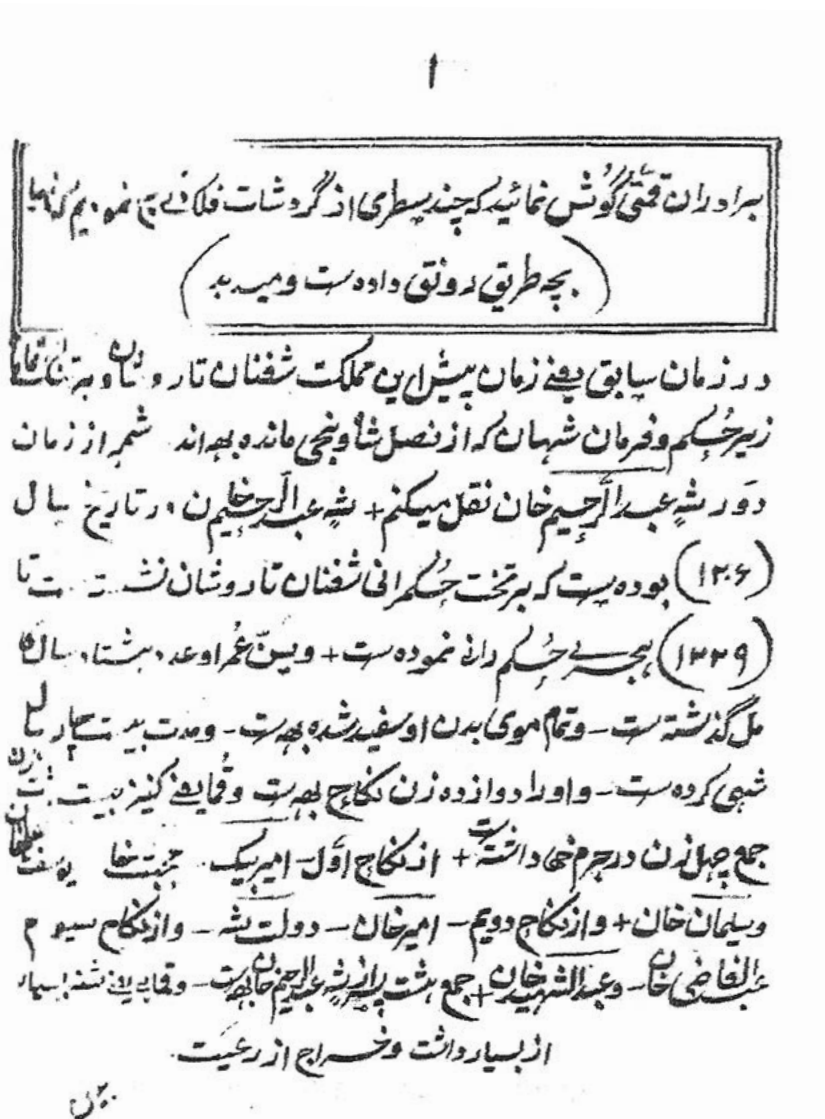 ۱
برادران قمتی گوش نمائید که چند سطری از گردشات فلک نمودیم که نهیا
(بچه طریق رونق داده ست و میدبد)
در زمان سابق یعنے زمان پیش این مملکت شغنان تا روشان و به
زیر حُکم و فرمان شهان که از نصل شاونجی مانده بهاند شمر از زمان
دَور شهِ عبدالرَّحیم خان نقل میکنم + شهِ عبدالرحیم خان در تاریخ سال
(۱۲۰۶) بوده ست که بر تخت حُکمرانی شغنان تا روشان نشست تا
(۱۲۲۹) هجرے حُکم رانے نموده ست + و سنّ عُمر او عدد هشتاد سال کا
مل گذشته ست - و تمام موی بدن او سفید شده بهست - و مدت بیست چهار سال
شهی کرده ست - و او را دوازده زن نکاح بهست و قُما یعنے کنیز بیست هشت زن
جمع چهل زن در حرم خود داشته ست + از نکاح اوّل - امیر بیک محبت خان یوسفعلیخان
و سلمان خان + و از نکاح دویم - امیر خان - دولت شه - و از نکاح سیوم
عبدالغاضی خان - و عبدالشهید خان + جمع هشت پسر از شهِ عبدالرحیم خان بهست - و بسیار
از بسیار داشت و خراج از رعیت